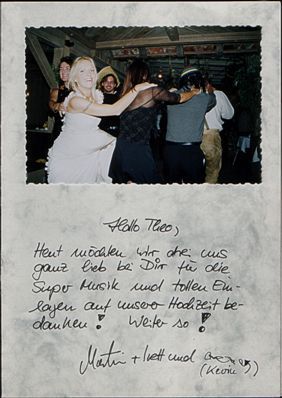 Hallo Theo,
Heut möchten wir drei uns
ganz lieb bei Dir für die
Super Musik und tollen Ein-
lagen auf unserer Hochzeit be-
danken! Weiter so!
Martin + Ivett und
(Kevin)